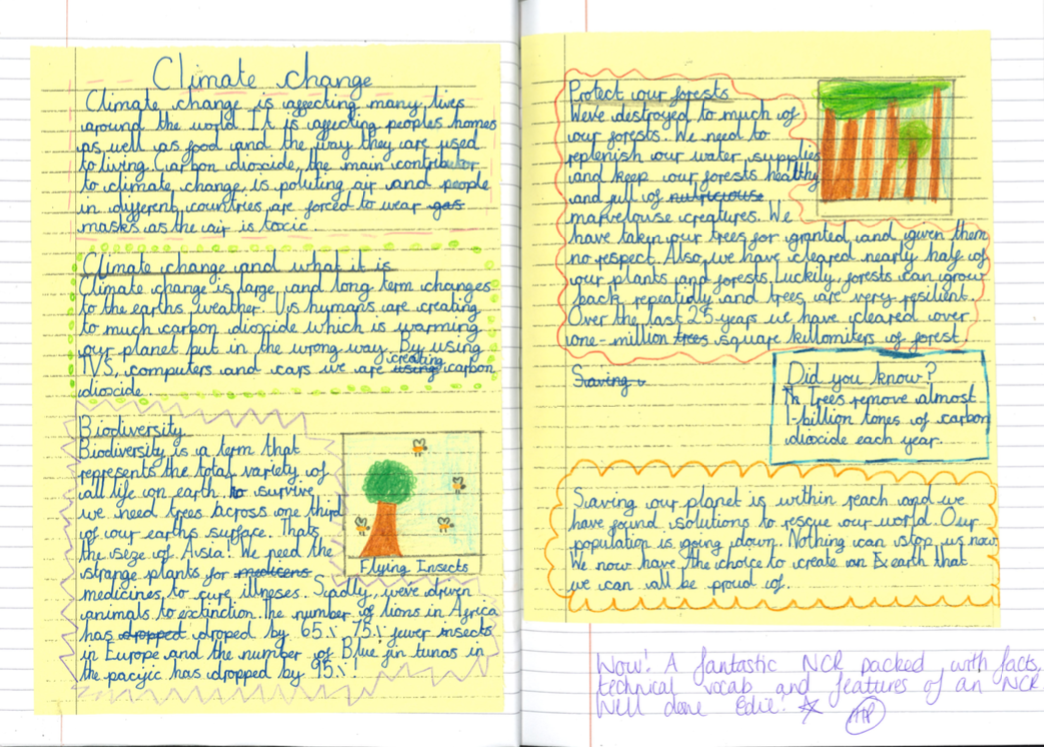 Climate change
Climate change is affecting many lives
around the world. It is affecting peoples homes
as well as food and the way they are used
to living. Carbon dioxide, the main contributor
to climate change, is poluting air and people
in different countries are forced to wear gas
masks as the air is toxic.
Climate change and what it is
Climate change is large and long term changes
to the earths weather. Us humans are creating
to much carbon dioxide which is warming
our planet but in the wrong way. By using
creating
TVS, computers and cars we are using carbon
dioxide.
Biodiversity
Biodiversity is a term that
represents the total variety of
all life on earth. to survive
we need trees across one third
of our earths surface. Thats
the seze of Asia! We need the
strange plants for medicens
medicines to cure illneses. Sadly, we've driven
animals to extinction. The number of lions in Africa
has dropped droped by 65%. 75% fewer insects
in Europe and the number of Blue fin tunas in
the pacific has dropped by 95%!
Flying Insects
Protect our forests
We've destroyed to much of
our forests. We need to
replenish our water supplies
and keep our forests healthy
and full of nutriciouse
marvelouse creatures. We
have takin our trees for granted and given them
no respect. Also, we have cleared nearly half of
our plants and forests. Luckily, forests can grow
back repeatidly and trees are very resilient.
Over the last 25 years we have cleared over
one-million trees square killomiters of forest.
Saving
Did you know?
Th Trees remove almost
1-billion tones of carbon
dioxide each year.
Saving our planet is within reach and we
have found solutions to rescue our world. Our
population is going down. Nothing can stop us now.
We now have the choice to create an E earth that
we can all be proud of.
Wow! A fantastic NCR packed with facts,
technical vocab and features of an NCR
Well done Edie!